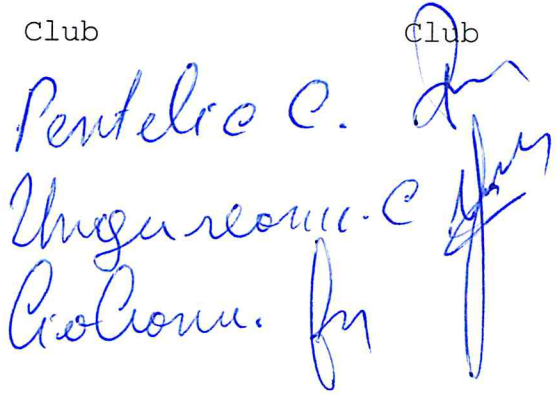 Club Club
Pentelie C.
Ungureanu. C
Ciocianu.